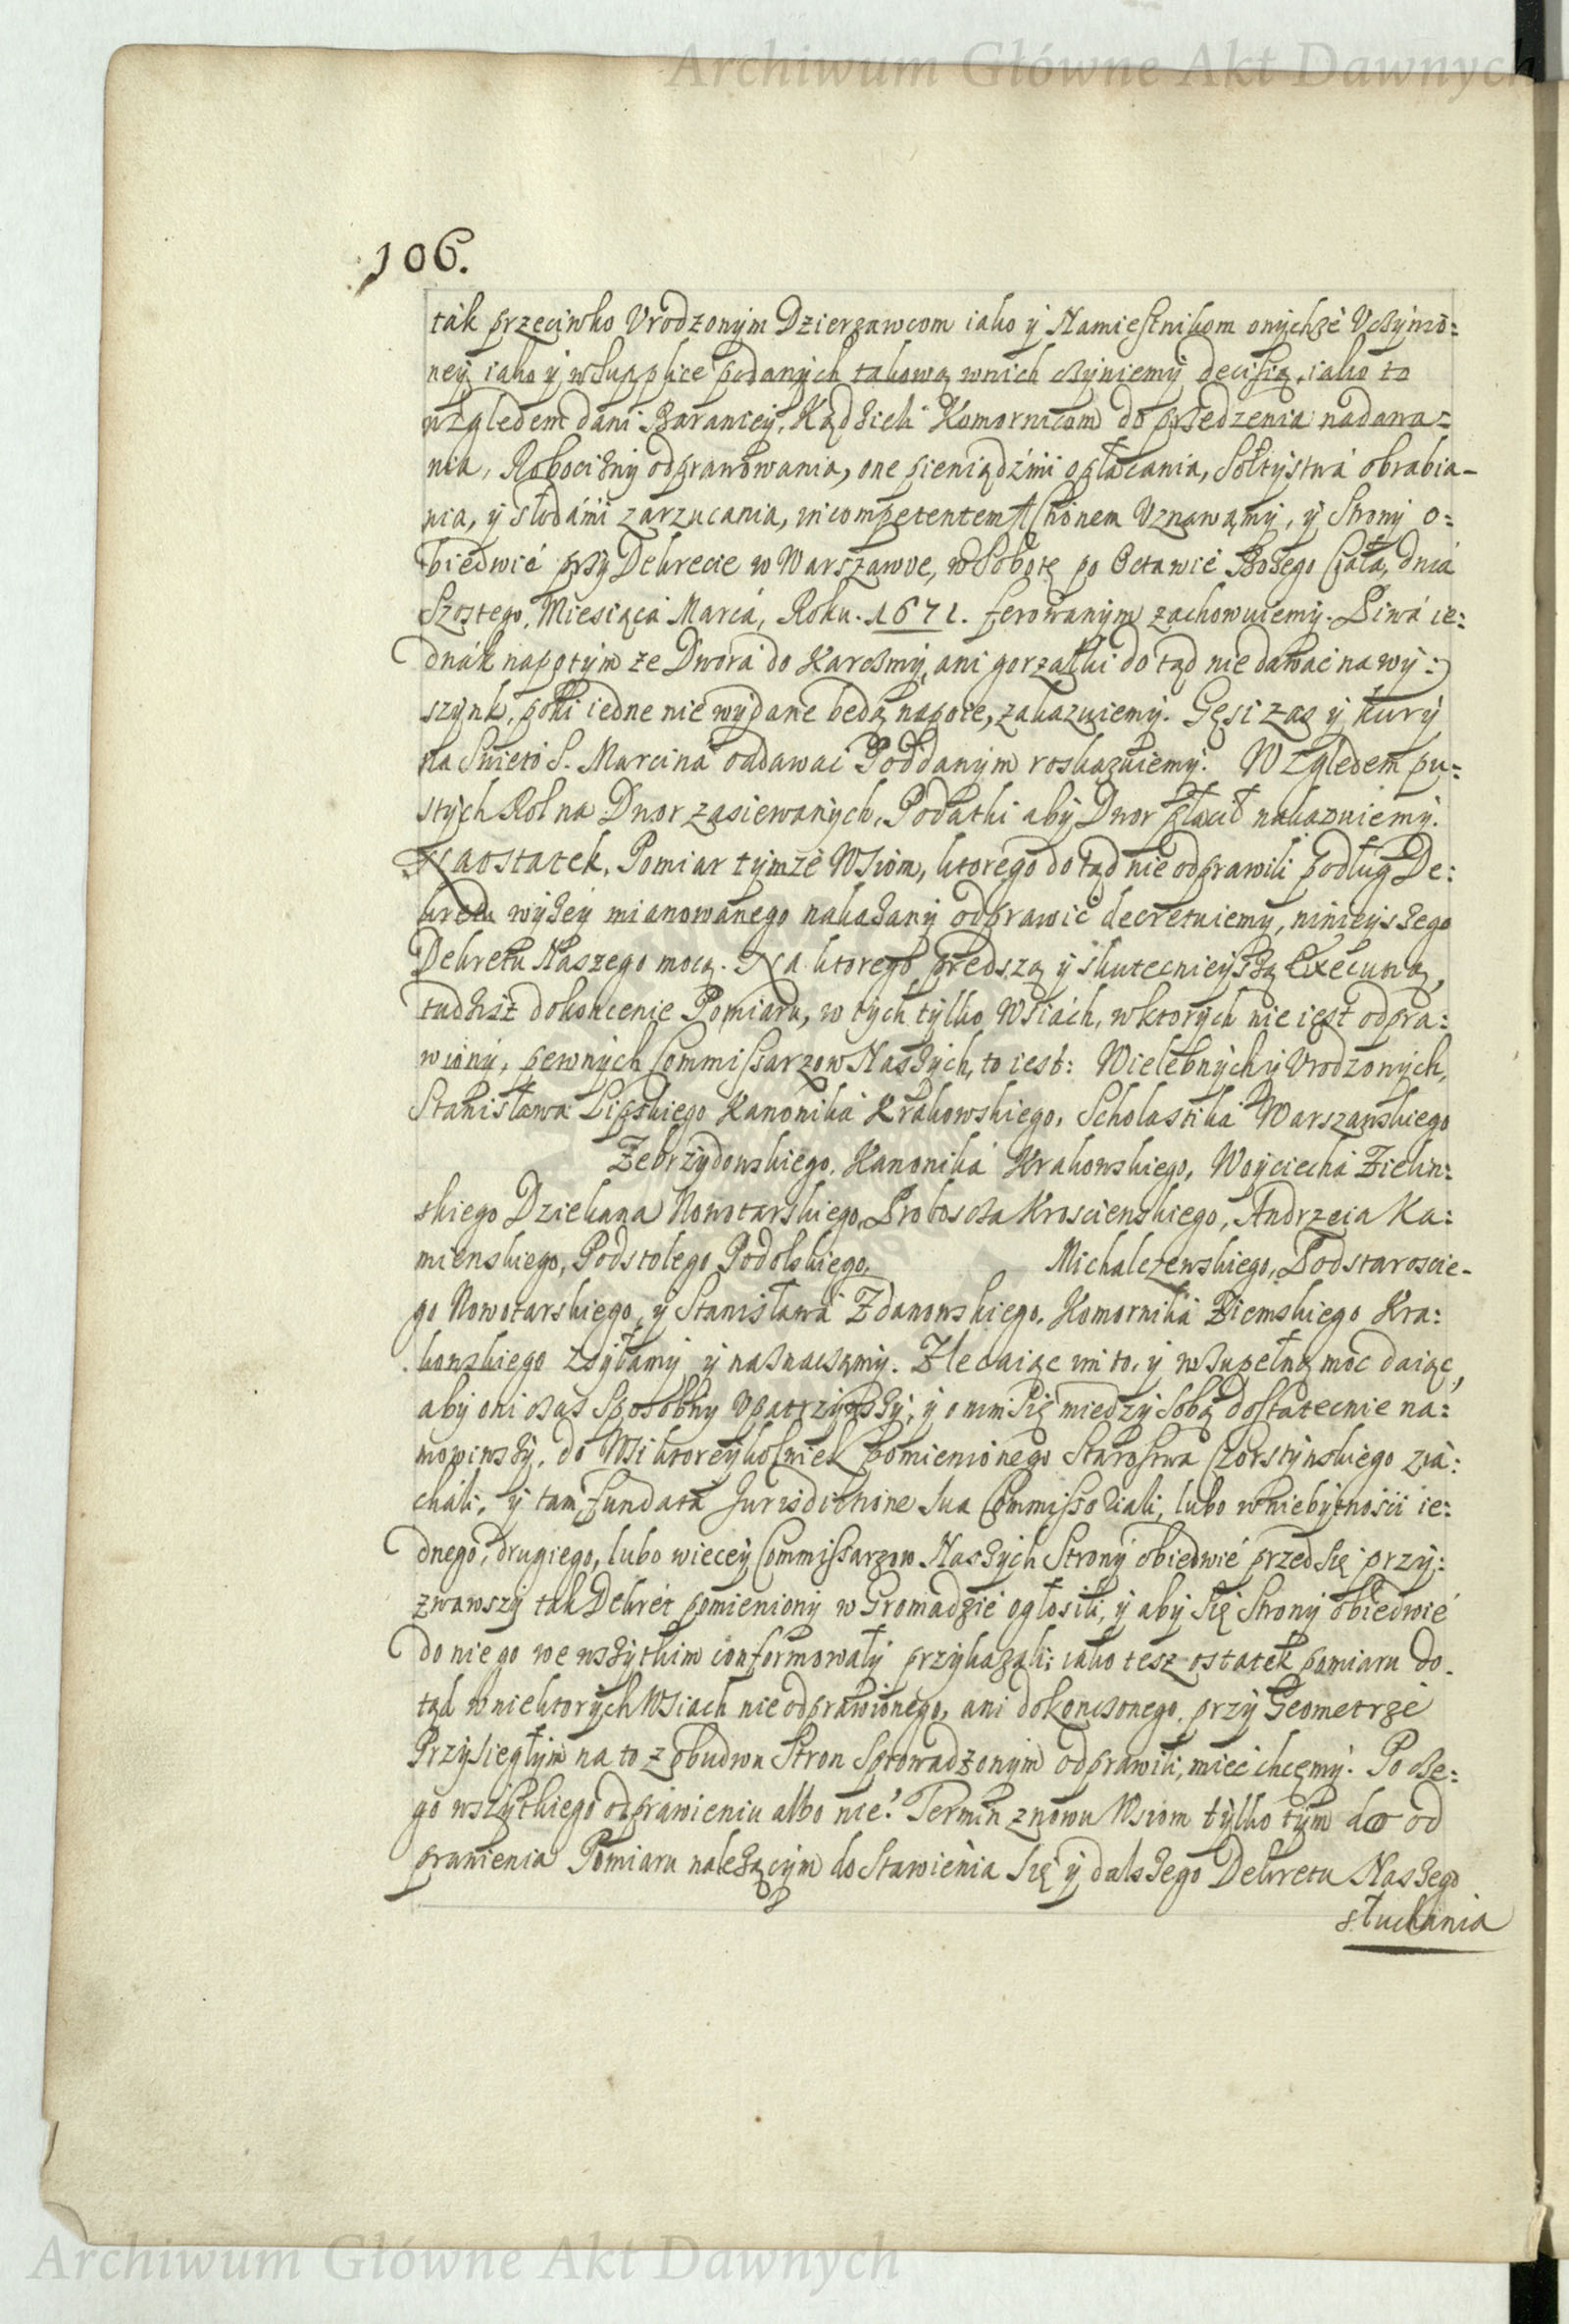 Archiwum Główne Akt Dawnych
106.
ták przeciwko Vrodzonym Dzierzawcom iako y Namiestnikom onychże Vczynio=
ney iako y w Supplice podanych takową w nich czyniemy decisią, iako to
względem dani Baraniey, Kądzieli Komornicom do przedzenia nadawa=
nia, Robocizny odprawowania, one pieniądźmi opłacania, Sołtystwá obrabia-
nia, y słodámi zarzucania, incompetentem Actionem Vznawamy, y Strony o=
biedwie przy Dekrecie w Warszawe, w Sobotę po Octawie Bożego Ciała, dniá
Szostego, Miesiąca Marca, Roku. 1671. ferowanym zachowuiemy. Piwá ie:
dnák napotym ze Dworá do Karczmy, ani gorzałki do tąd nie dawać na wy:
szynk, poki iedne nie wydane będą napoie, zakazuiemy. Gęsi zas y kury
na Swięto S. Marcina oddawać Poddanym roskazuiemy. Względem pu=
stych Rol na Dwor zasiewanych, Podatki aby Dwor płacił nakazuiemy.
Naostatek, Pomiar tymże Wsiom, ktorego do tąd nie odprawili podług De:
kretu wyżey mianowanego nakazany odprawić decretuiemy, ninieyszego
Dekretu Naszego mocą. Na ktorego prędszą y skutecnieyszą Execucią,
tudziesz dokoncenie Pomiaru, w tych tylko Wsiách, w ktorych nie iest odpra:
wiony, pewnych Commissarzow Naszych, to iest: Wielebnych y Vrodzonych,
Stanisława Lipskiego Kanonika Krakowskiego, Scholastika Warszawskiego
Zebrzydowskiego, Kanonika Krakowskiego, Woyciecha Zielin:
skiego Dziekana Nowotarskiego, Proboscza Kroscienskiego, Andrzeia Ka:
mienskiego, Podstolego Podolskiego, Michalczewskiego, Podstaroscie-
go Nowotarskiego, y Stanisława Zdanowskiego, Komorniká Ziemskiego Kra:
kowskiego zsyłamy y naznaczamy. Zlecaiąc im to, y w zupełną moc daiąc,
aby oni czas sposobny vpatrzywszy, y o nim się miedzy sobą dostatecnie na:
mowiwszy, do Wsi ktoreykolwiek pomienionego Starostwa Czorstynskiego zia:
cháli, y tam fundata Jurisdictione sua Commissoriali, lubo w niebytności ie:
dnego, drugiego, lubo wiecey Commissarzow Naszych Strony obiedwie przed się przy:
zwawszy tak Dekret pomieniony w Gromadzie ogłosili, y aby się Strony obiedwie
do niego we wszytkim conformowały przykazali: iako tesz ostatek pomiaru do-
tąd w niektorych Wsiach nie odprawionego, ani dokonczonego, przy Geometrze
Przysięgłym na to z obudwu Stron sprowadzonym odprawili, mieć chcemy. Po cze:
go wszytkiego odprawieniu albo nie. Termin znowu Wsiom tylko tym do od
prawienia Pomiaru należącym do stawienia się y dalszego Dekretu Naszego
słuchania
Archiwum Główne Akt Dawnych